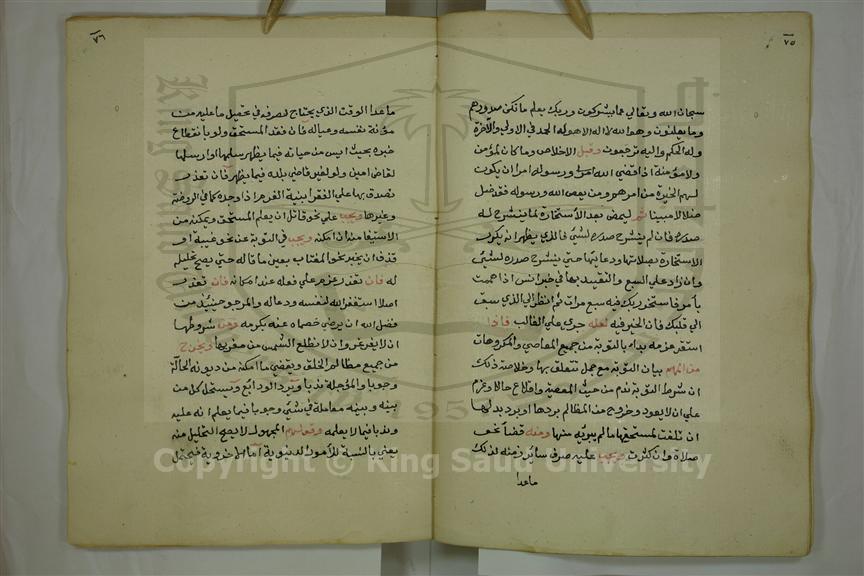 ٧٥
سبحان الله وتعالى عما يشركون وربك يعلم ما تكن صدورهم
وما يعلنون وهو الله لا اله الا هو له الحمد في الاولى والآخرة
وله الحكم واليه ترجعون وقيل الاخلاص وما كان لمؤمن
ولا مؤمنة اذا قضى الله ورسوله امرا ان يكون
لهم الخيرة من امرهم ومن يعص الله ورسوله فقد ضل
ضلالا مبينا ثم ليمض بعد الاستخارة لما ينشرح له
صدره فان لم ينشرح صدره لشئ فالذي يظهر انه يكرر
الاستخارة بصلاتها ودعائها حتى ينشرح صدره لشئ
وان زاد على السبع والتقييد بها في خبر انس اذا هممت
بامر فاستخر ربك فيه سبع مرات ثم انظر الى الذي سبق
الى قلبك فان الخير فيه لعله جرى على الغالب فاذا
استقر عزمه بدأ بالتوبة من جميع المعاصي والمكروهات
من المهم بيان التوبة مع جمل تتعلق بها وخلاصة ذلك
ان شرط التوبة ندم من حيث المعصية واقلاع حالا وعزم
على ان لا يعود وخروج من المظالم بردها او برد بدلها
ان تلفت لمستحقها ما لم يبرئه منها ومنه قضاء نحو
صلاة وان كثرت ويجب عليه صرف سائر زمنه لذلك
ماعدا
٧٦
ماعدا الوقت الذي يحتاج لصرفه في تحصيل ما عليه من
مؤنة نفسه وعياله فان فقد المستحق ولو بانقطاع
خبره بحيث ايس من حياته فيما يظهر سلمها او ارسلها
لقاض امين ولو لغير قاضي بلده فيما يظهر فان تعذر
تصدق بها على الفقراء بنية الغرم اذا وجده كما في الروضة
وغيرها ويجب على نحو قاتل ان يعلم المستحق ويمكنه من
الاستيفا منه ان امكنه ويجب في التوبة عن نحو غيبة او
قذف ان يخبر نحو المغتاب بعين ما قاله حتى يصح تحليله
له فان تعذر عزم على فعله عند امكانه فان تعذر
اصلا استغفر الله لنفسه ودعا له والمرجو حينئذ من
فضل الله ان يرضي خصماه عنه بكرمه ومن شروطها
ان لا يغرغر وان لا تطلع الشمس من مغربها ويخرج
من جميع مظالم الخلق ويقضي ما امكنه من ديونه الحالة
وجوبا والمؤجلة ندبا ويرد الودائع ويستحل كل من
بينه وبينه معاملة في شئ وجوبا فيما يعلم انه عليه
وندبا فيما لا يعلمه وقولهم المجهول لا يصح التحليل منه
يعني بالنسبة للامور الدنيوية اما الاخروية فيحتمل
Copyright © King Saud University
King Saud University
1957